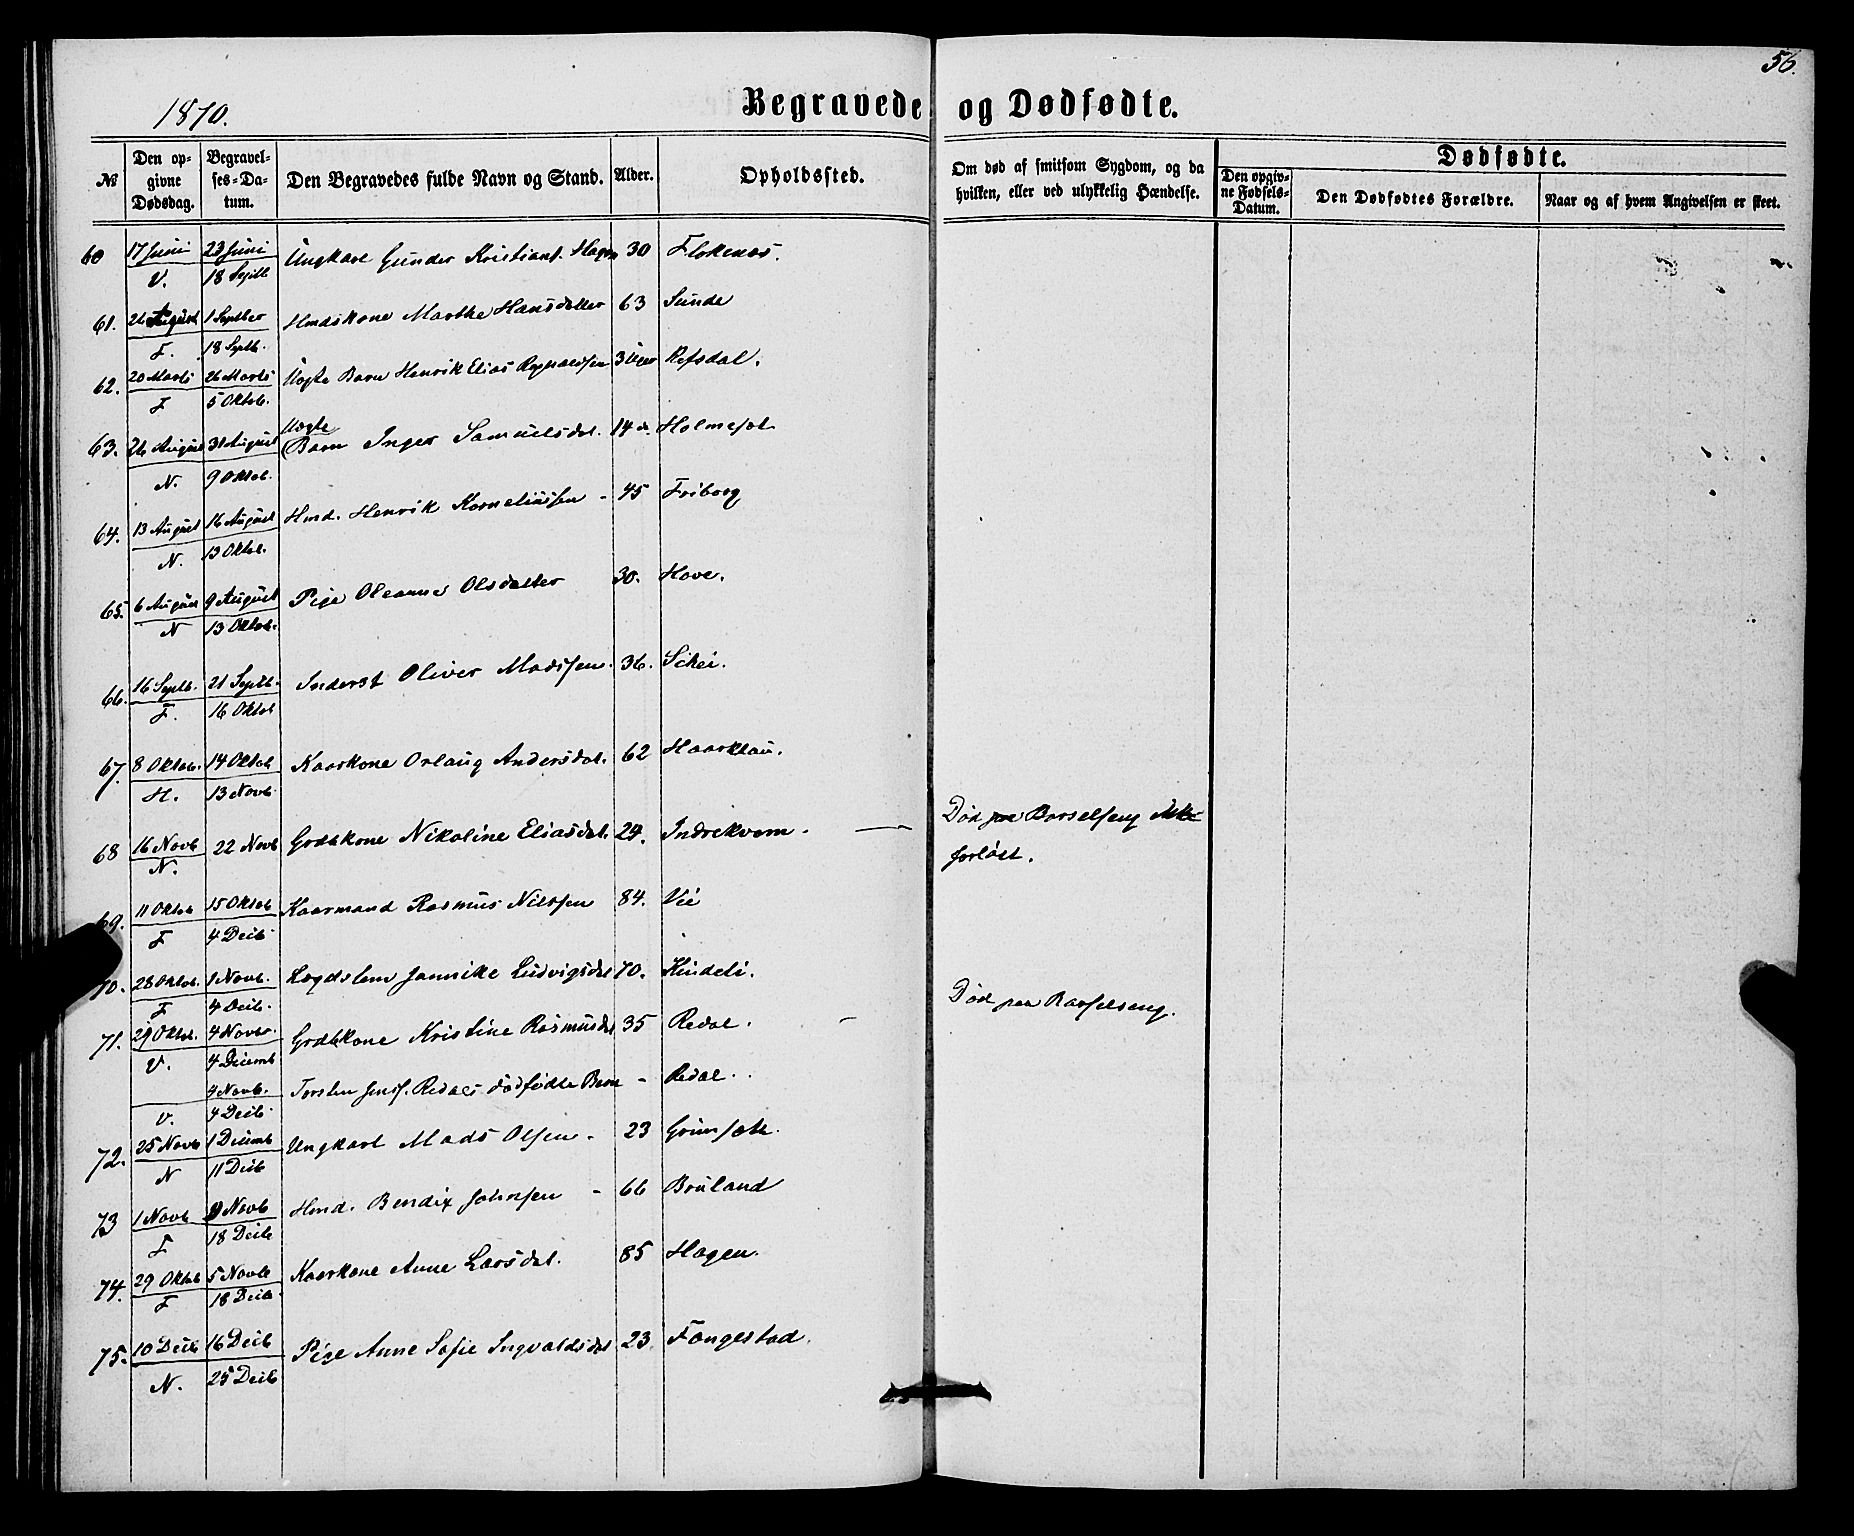 56.
1870.
Begravede og Dødfødte.
№
Den op-
givne
Dødsdag.
Begravel-
ses-Da-
tum.
Den Begravedes fulde Navn og Stand.
Alder.
Opholdssted.
Om død af smitsom Sygdom, og da
hvilken, eller ved ulykkelig Hændelse.
Dødfødte.
Den opgiv-
ne Fødsels-
Datum.
Den Dødfødtes Forældre.
Naar og af hvem Angivelsen er skeet.
60 17 Juni 23 Juni Ungkarl Gunder Kristians. Hagen 30 Flokenæs.
V. 18 Septb
61. 26 August 1 Septber Hmdskone Marthe Hansdatter 63 Sunde
F. 18 Septb.
62. 20 Marts 26 Marts Uægte Barn Henrik Elias Rognaldsen 3 Uger Refsdal.
F 5 Oktob.
Uægte
63. 26 August 31 August Barn Inger Samuelsdat. 14 d. Holmesæt
N. 9 Oktob.
64. 13 August 16 August Hmd. Henrik Korneliussen - 45 Friborg
N. 13 Oktob.
65. 6 August 9 August Pige Oleanna Olsdatter 30. Hove.
N 13 Oktob.
66. 16 Septb. 21 Septb. Inderst Oliver Madssen. 36. Schei.
F. 16 Oktob
67. 8 Oktob. 14 Oktob Kaarkone Orlaug Andersdat. 62 Haarklau.
H. 13 Novb
68 16 Novb 22 Novb Grdbkone Nikoline Eliasdat. 24. Indrekvam. — Død paa Barselseng
N. forløst.
69. 11 Oktob 15 Oktob Kaarmand Rasmus Nilssen 84. Vie
F 4 Decb.
70. 28 Oktob. 1 Novb. Lægdslem Jannike Ludvigsdat 70. Kindeli.
F 4 Decb.
71. 29 Oktob. 4 Novb. Grdbkone Kristine Rasmusdat 35 Redal. - Død paa Barselseng.
V. 4 Decemb
4 Novb. Torsten Jenss. Redals dødfødte Barn - Redal.
V. 4 Decb.
72. 25 Novb 1 Decemb Ungkarl Mads Olsen. 23 Grimsæth.
N 11 Decb
73 1 Novb 9 Novb Hmd. Bendix Johnsen - 66 Bruland
F 18 Decb
74. 29 Oktob 5 Novb Kaarkone Anne Larsdat. 85 Hagen.
F 18 Decb.
75. 10 Decb 16 Decb Pige Anne Sofie Ingvaldsdat 23. Fangestad.
N. 25 Decb